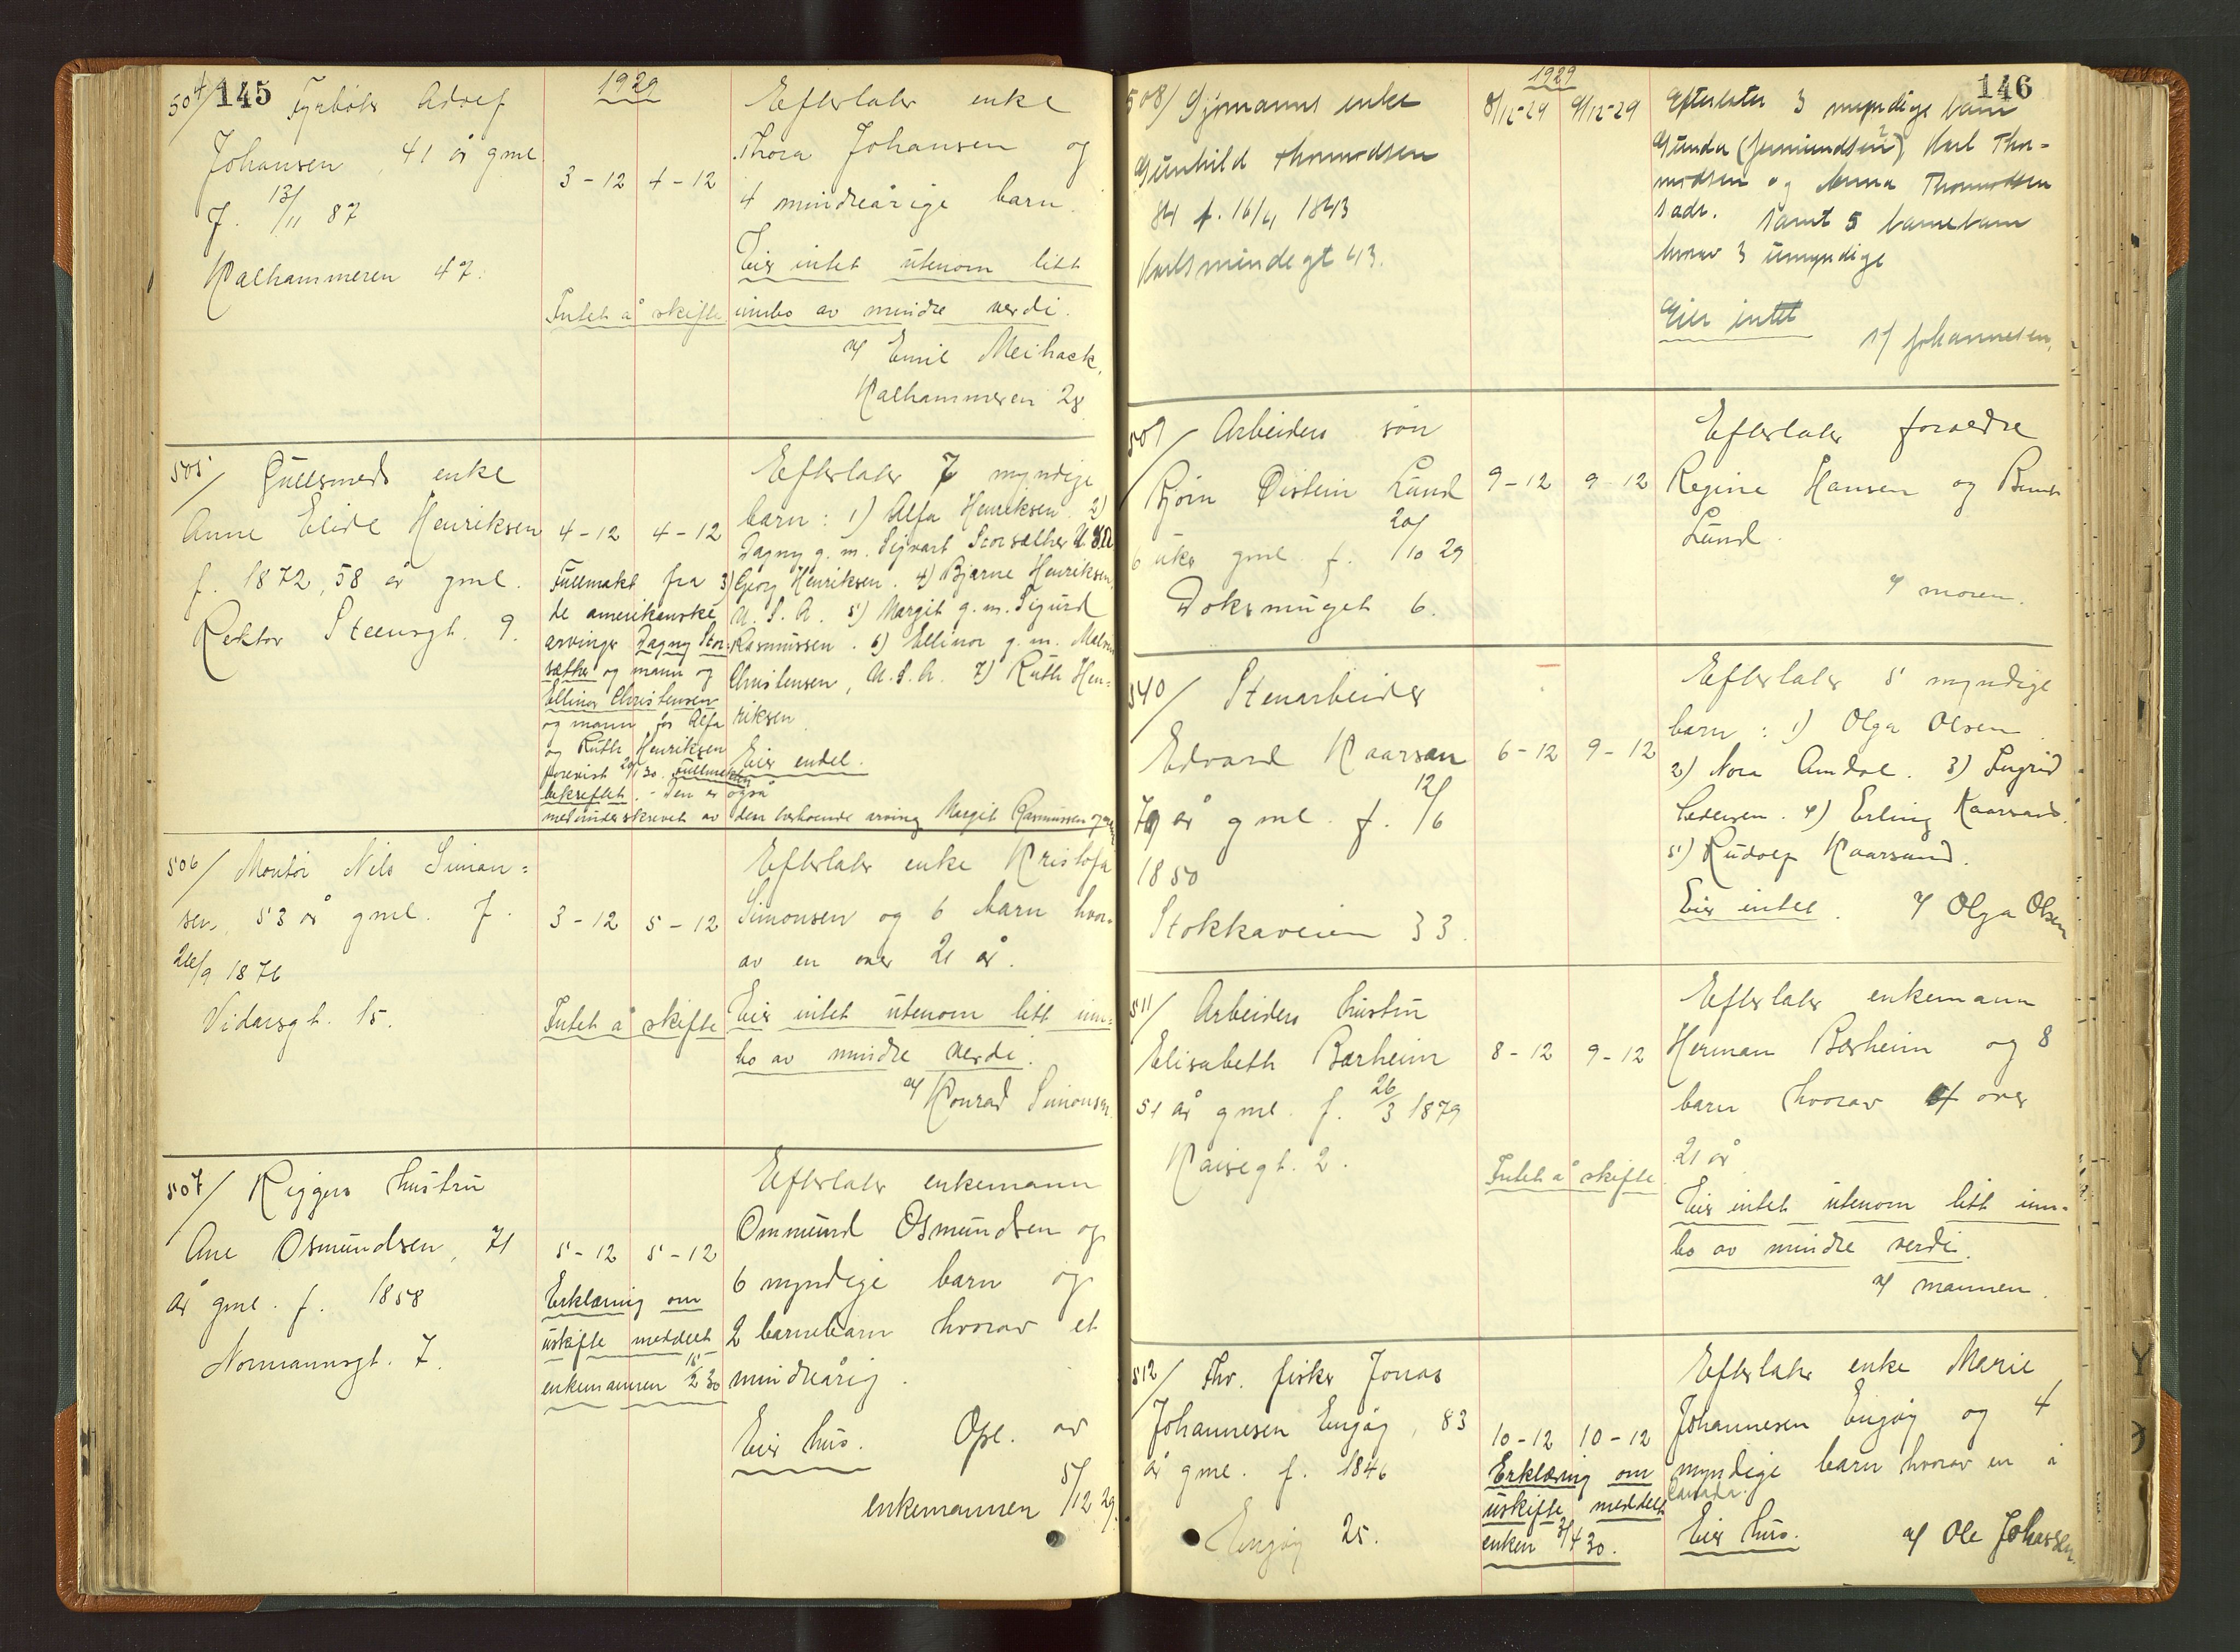 145
1929
504/ Fyrbøter Adolf
Johansen, 41 år gml.
f. 13/11 87
Kalhammeren 47.
3-12 4-12
Intet å skifte
Efterlater enke
Thora Johansen og
4 mindreårige barn.
Eier intet utenom litt
innbo av mindre verdi.
Emil Meihack,
Kalhammeren 28
505/ Gullsmeds enke
Anne Elide Henriksen
f. 1872, 58 år gml.
Rektor Steensgt. 9.
4-12 4-12
Fullmakt fra
de amerikanske
arvinger Dagny Stor-
sæther og mann og
Ellinor Christensen
og mann for Alfa
og Ruth Henriksen
forevist 20/1 30. Fullmakten
bekreftet. - Den er også
medunderskrevet av den herboende arving Margit Rasmussen og
Efterlater 7 myndige
barn: 1) Alfa Henriksen. 2)
Dagny g.m. Sigvart Storsæther U.S.A.
3) Georg Henriksen. 4) Bjarne Henriksen,
U.S.A. 5) Margit g.m. Sigurd
Rasmussen. 6) Ellinor g.m.
Christensen, U.S.A. 7) Ruth Hen-
riksen
Eier endel.
506/ Montør Nils Simon-
sen, 53 år gml. f.
26/9 1876
Vidarsgt. 15.
3-12 5-12
Intet å skifte
Efterlater enke Kristofa
Simonsen og 6 barn hvor-
av en over 21 år.
Eier intet utenom litt inn-
bo av mindre verdi.
Konrad Simonsen.
507/ Riggers hustru
Ane Osmundsen, 71
år gml. f. 1858
Normannsgt. 7.
5-12 5-12
Erklæring om
uskifte meddelt
enkemannen 15/2 30
Efterlater enkemann
Ommund Osmundsen og
6 myndige barn og
2 barnebarn hvorav et
mindreårig.
Eier hus. Opl. av
enkemannen 5/12 29.
146
1929
508/ Sjømanns enke
Gunhild Thomodsen
84 f. 16/4 1843
Karlsmindegt 43.
8/12-29 9/12-29
Efterlater 3 myndige barn
Gunda (), Karl Tho-
modsen og Anna Thomodsen
sadr. samt 5 barnebarn
hvorav 3 umyndige
Eier intet
s/ Johannesen,
509/ Arbeiders sønn
Bjørn Øistein Lund
6 uker gml. f. 29/10 29
Doksmuget 6.
9-12 9-12
Efterlater foreldre
Regine Hansen og Bernt
Lund.
moren.
510/ Stenarbeider
Edvard Kaarsan
79 år gml. f. 12/6
1850
Stokkaveien 33.
6-12 9-12
Efterlater 5 myndige
barn: 1) Olga Olsen.
2) Nora Amdal. 3) Ingrid
Pedersen. 4) Erling Kaarsand.
5) Rudolf Kaarsand.
Eier intet. Olga Olsen
511/ Arbeiders hustru
Elisabeth Bærheim
51 år gml. f. 26/3 1879
Kaisegt. 2.
8-12 9-12
Intet å skifte
Efterlater enkemann
Herman Bærheim og 8
barn hvorav 4 over
21 år.
Eier intet utenom litt inn-
bo av mindre verdi.
mannen.
512/ Fhv. fisker Jonas
Johannesen Engøy, 83
år gml. f. 1846
Engøy 25.
10-12 10-12
Erklæring om
uskifte meddelt
enken 3/4 30.
Efterlater enke Marie
Johannesen Engøy og 4
myndige barn hvorav en i
Canada.
Eier hus. Ole Johassen.